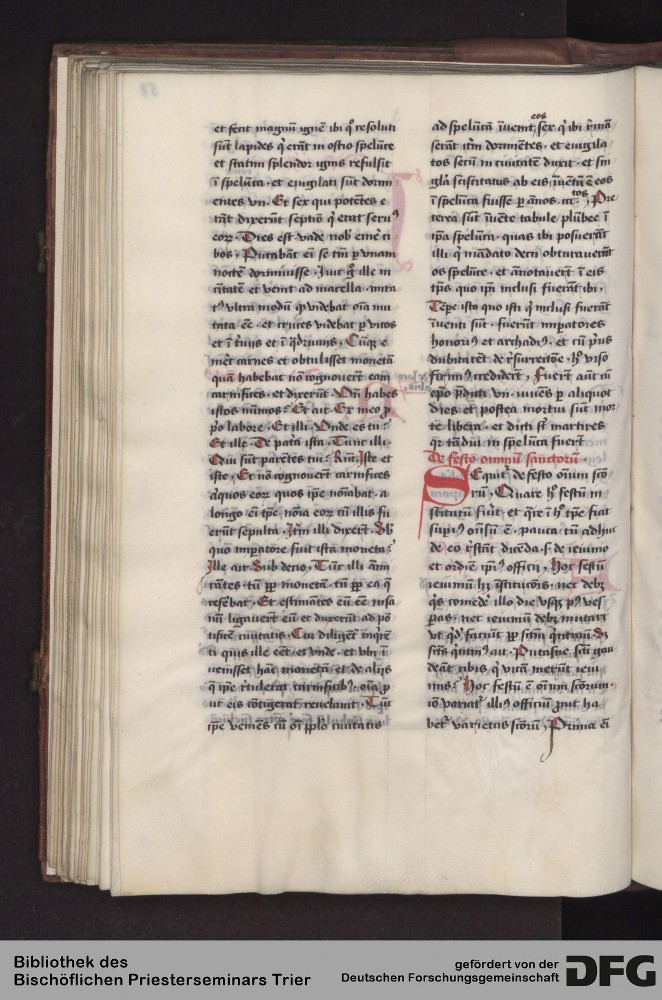 et fecit magnū ignē ibi qͦ resoluti
sūt lapides q̇ erāt in ostio spelūce
et statim splendor ignis refulsit
ī spelūca · et euigilati sūt dorm
entes vn · Et sex qui potētes e
rāt dixerūt septīo q̇ erat seruꝰ
eoꝝ · Dies est vade nob̄ emē ci
bos · Putabāt eī se tm̄ ꝑ vnam
noctē dormiuisse · Iuit gͦ ille in
ciuitatē et venit ad macella · mira
tꝰ vltra modū qꝫ videbat oīa mu
tata eē · et cruces videbat ꝑ vicos
et ī
mēt carnes et obtulisset monetā
quā habebat nō cognouerūt eam
carnifices · et dixerūt · Vn̄ habes
istos nūmos · Et ait · Ex meo ꝓ
p̄o labore · Et illi · Vnde es tu ·
Et ille · De pat̄a ista · Tunc illi ·
Qui sūt parētes tui · Rn̄t · Iste et
iste · Et nō cognouerūt carnifices
aͥquos eoꝝ quos ip̄e noīabat · a
longo eī tp̄e noīa eoꝝ cū illis fu
erūt sepulta · Itm̄ illi dixerūt · Sb̄
quo imꝑatore fuit ista moneta
Ille ait · Sub decio · Tūc illi
tātes tū ꝓp̄ monetā tū ꝓp̄ ea q̄
referebat · Et estimātes eū eē insa
nū ligauerūt eū et duxerūt ad pō
tificē ciuitatis · Cui diligēt inq̇rē
ti quis ille eēt · et vnde · et vbi ī
uenisset hāc monetā · et de alijs
q̄ ip̄e rͤtulerat carnificibꝰ · oīa ꝓ
ut eis cōtigerat reuelauit · Tūc
ip̄e veniēs cū oī pp̄lo ciuitatis
ad spelūcā īuenit eos sex q̇ ibi rͤmā
serāt itm̄ dormiētes · et euigila
tos secū in ciuitatē duxit · et sin
gl̄a sciscitatus ab eis īuētū ē eos
ī spelūca fuisse ꝑ ānos · cc · tos Pre
terea sūt īuēte tabule plūbee ī
ip̄a spelūca · quas ibi posuerāt
illi q̇ mādato decii obturauerūt
os spelūce · et ānotauerūt ī eis
tp̄s quo ip̄i inclusi fuerāt ibi ·
Tēpe isto quo isti q̇ inclusi fuerāt
īuenti sūt · fuerūt imꝑatores
honoriꝰ et archadiꝰ · et cū pͥus
dubitarēt de rͤsurrectōe · hͦ viso
firmiꝰ crediderūt · Fuerūt aūt cū
ep̄o
dies et postea mortui sūt mor
te libera · et dicti sūt martires
qꝛ tādiu in spelūca fuerūt
De festo omniū sanctorum ·
SEquitͬ de festo oīum scō
rū · Quare hͦ festū in
stitutū fuit · et qͣre ī hͦ tp̄e fiat
suꝑiꝰ on̄sū ē · pauca tn̄ adhuc
de eo rͤstāt dicēda · s · de ieiunio
et ordīe ip̄iꝰ officij · Hoc festū
ieiuniū hꝫ īstitutōis · nec debꝫ
q̇s comedē illo die vsqꝫ pꝰ ves
ꝑas · nec ieiuniū debꝫ mutari
vt qͥdā faciūt ꝓp̄ sctm̄ q̇ntinū · Sꝫ
sctūs q̇ntinꝰ ait · Putasne sc̄i gau
deāt cibis q̇ vitā meruēt ieiu
niis · Hoc festū ē oīum scōrum ·
iō variatͬ illiꝰ officiū ꝓut ha
betͬ varietas scōrū · Prima eī
Bibliothek des
Bischöflichen Priesterseminars Trier
gefördert von der
Deutschen Forschungsgemeinschaft
DFG